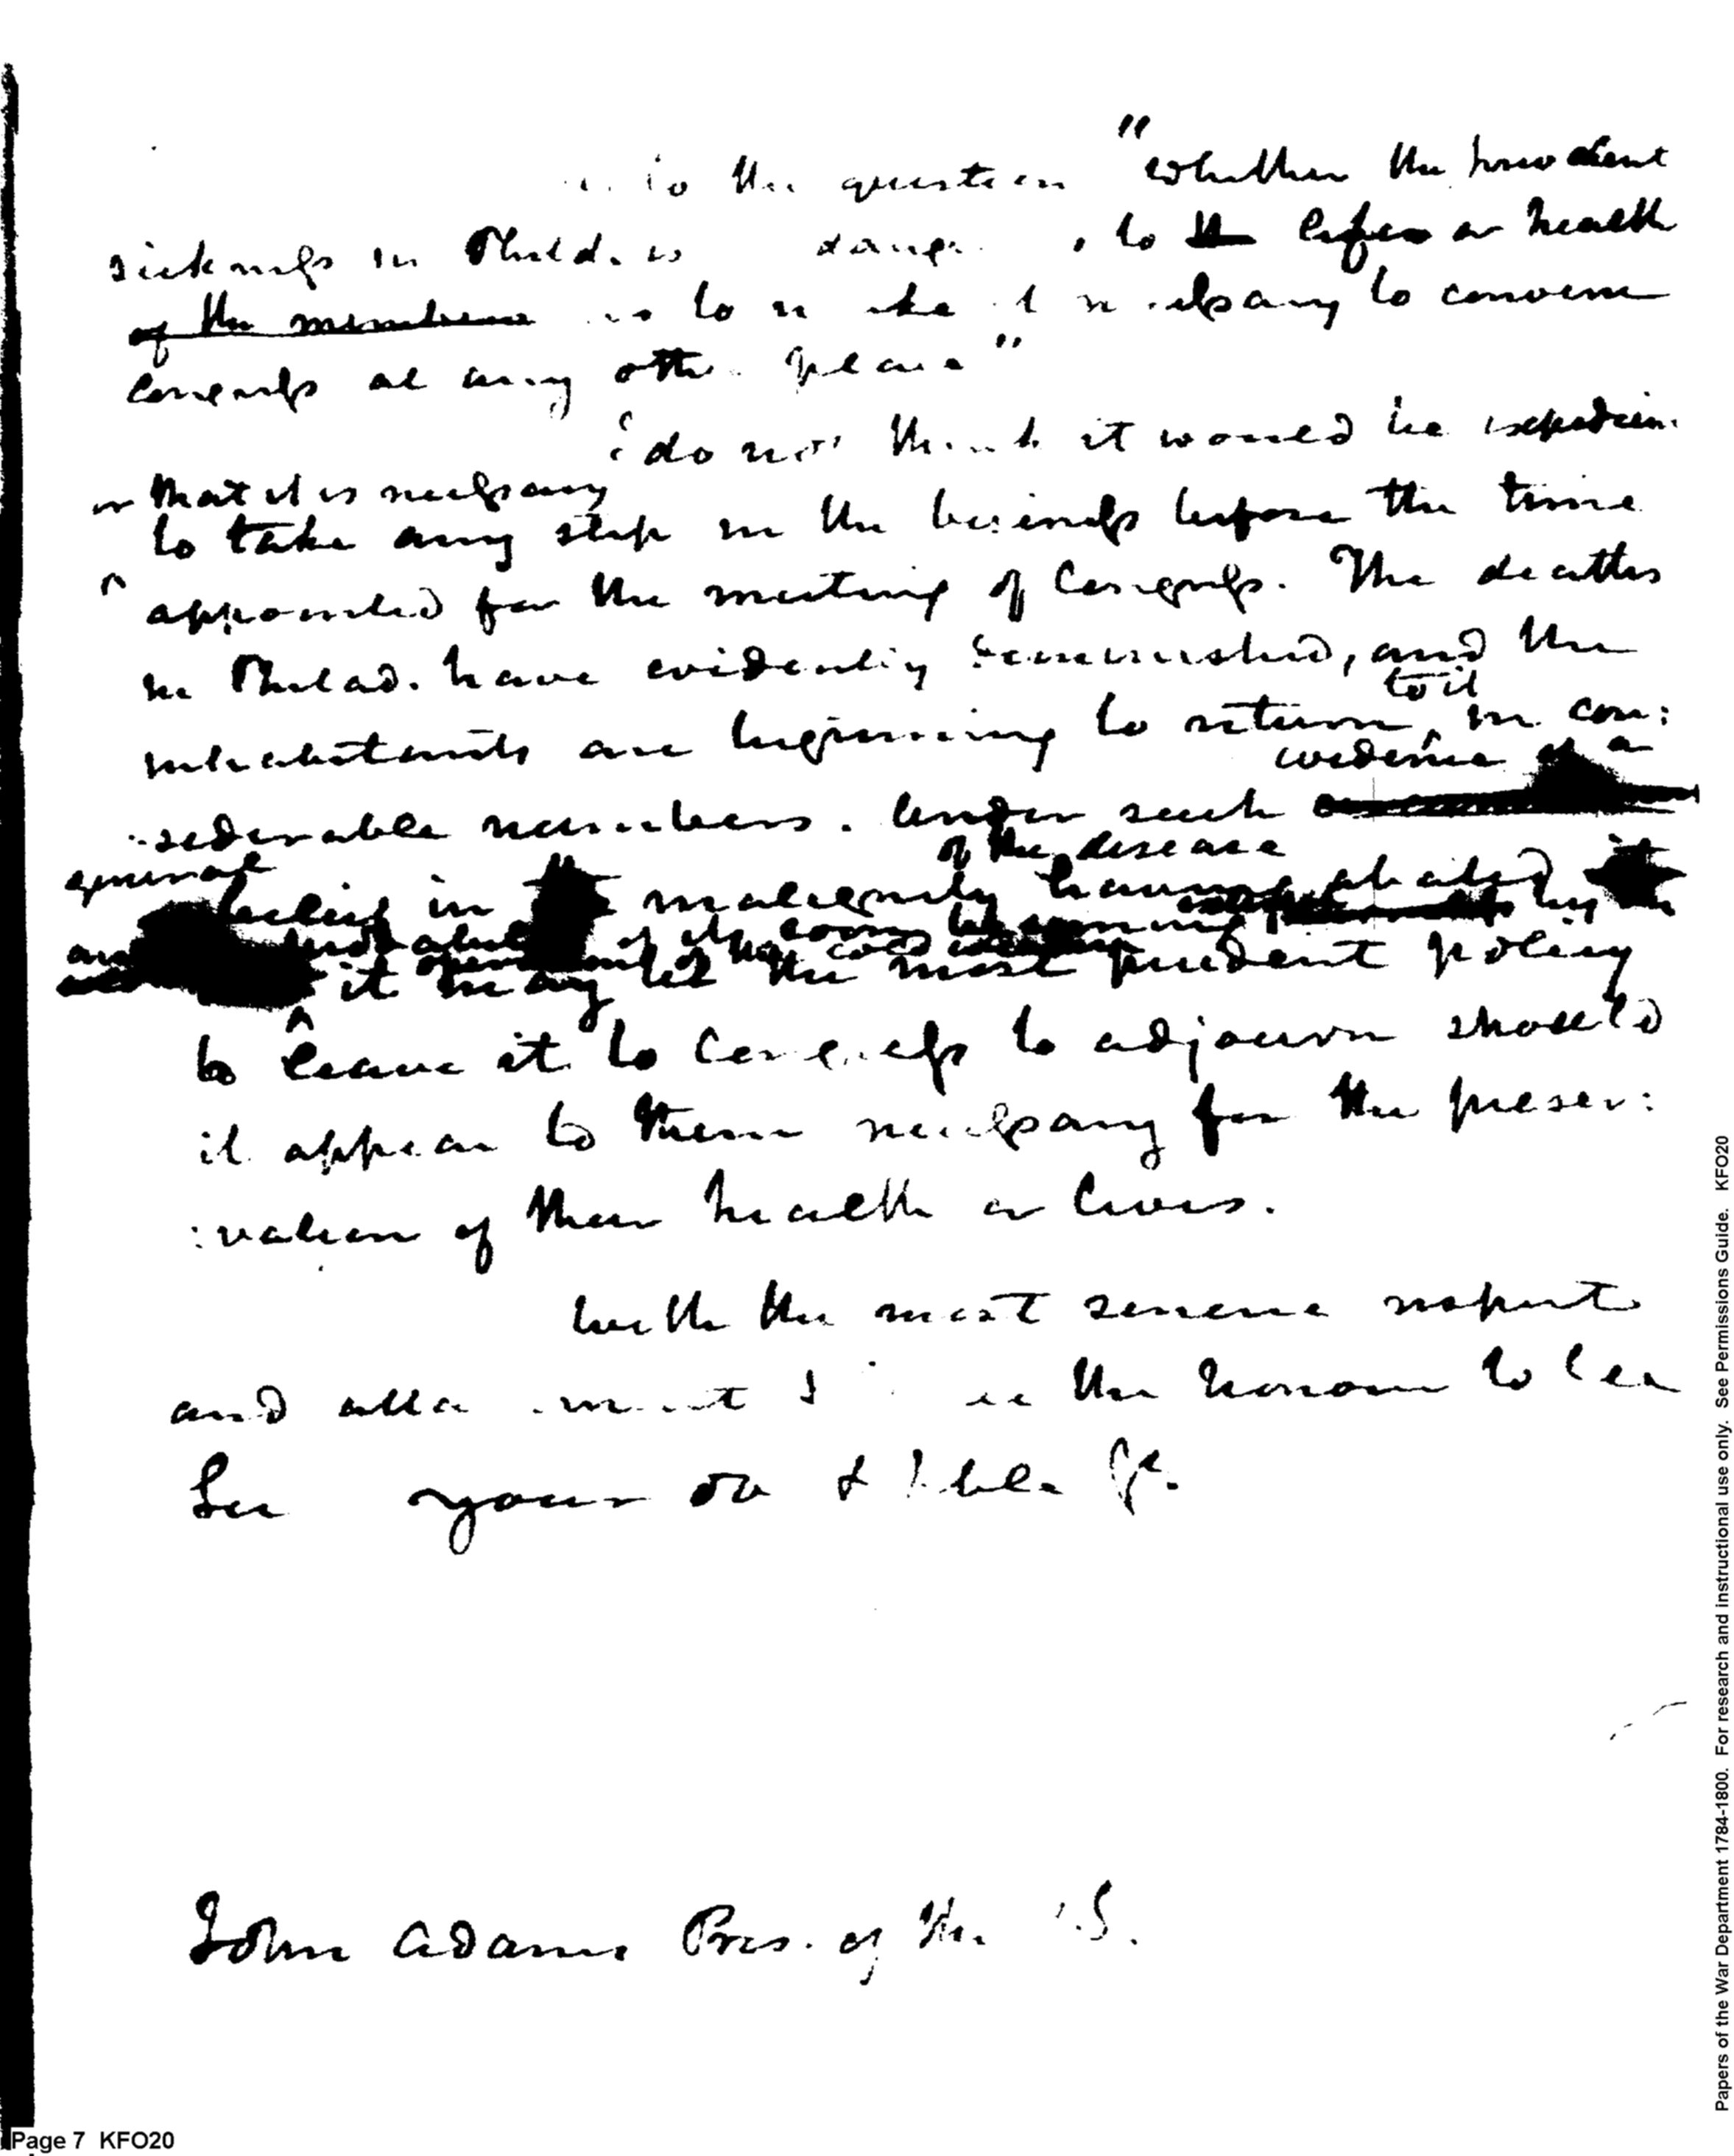 to the question "whether the prevalent
sickness in Philad. is to the lifes or health
of the members to necessary to convene
Congress at any other place"
I do not think it would be expedient
or that it is necessary
to take any step in the business before the time
appointed for the meeting of Congress. The deaths
in Philad. have evidently diminished, and the
to it
inhabitants are beginning to return, in con:
evidence of a
:siderable numbers. Under such
of the disease
general
belief in malignity having abated
it may be the most prudent policy
to leave it to Congress to adjourn should
it appear to them necessary for the preser:
:vation of their health or lives.
With the most sincere respect
and attachment I the honour to be
Sir your ob
John Adams Pres. of the U.S.
Page 7 KFO20
Papers of the War Department 1784-1800. For research and instructional use only. See Permissions Guide. KFO20